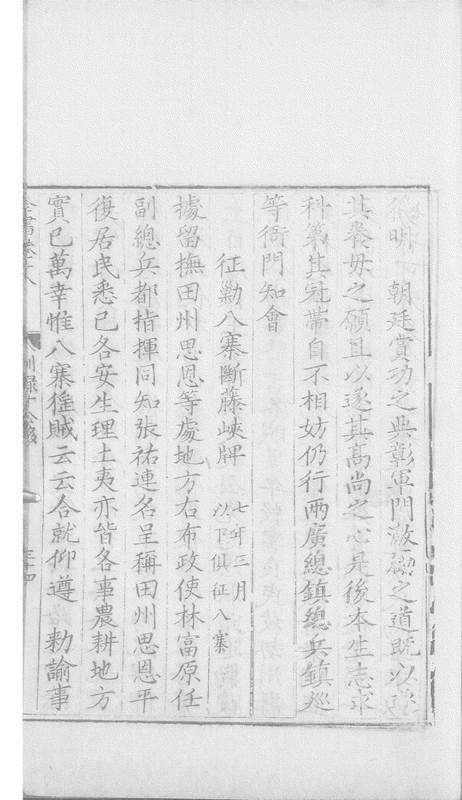 明 朝廷賞功之典彰軍門激勵之道既以
其養母之願且以遂其高尚之心是後本生志求
科第其冠帶自不相妨仍行兩廣總鎮總兵鎮巡
等衙門知會
征勦八寨斷藤峽牌 七年三月
以下俱征八寨
據留撫田州思恩等處地方右布政使林富原任
副總兵都指揮同知張祐連名呈稱田州思恩平
復居民悉已各安生理土夷亦皆各事農耕地方
實已萬幸惟八寨猺賊云云合就仰遵 勅諭事
全書卷
別錄十
三十四